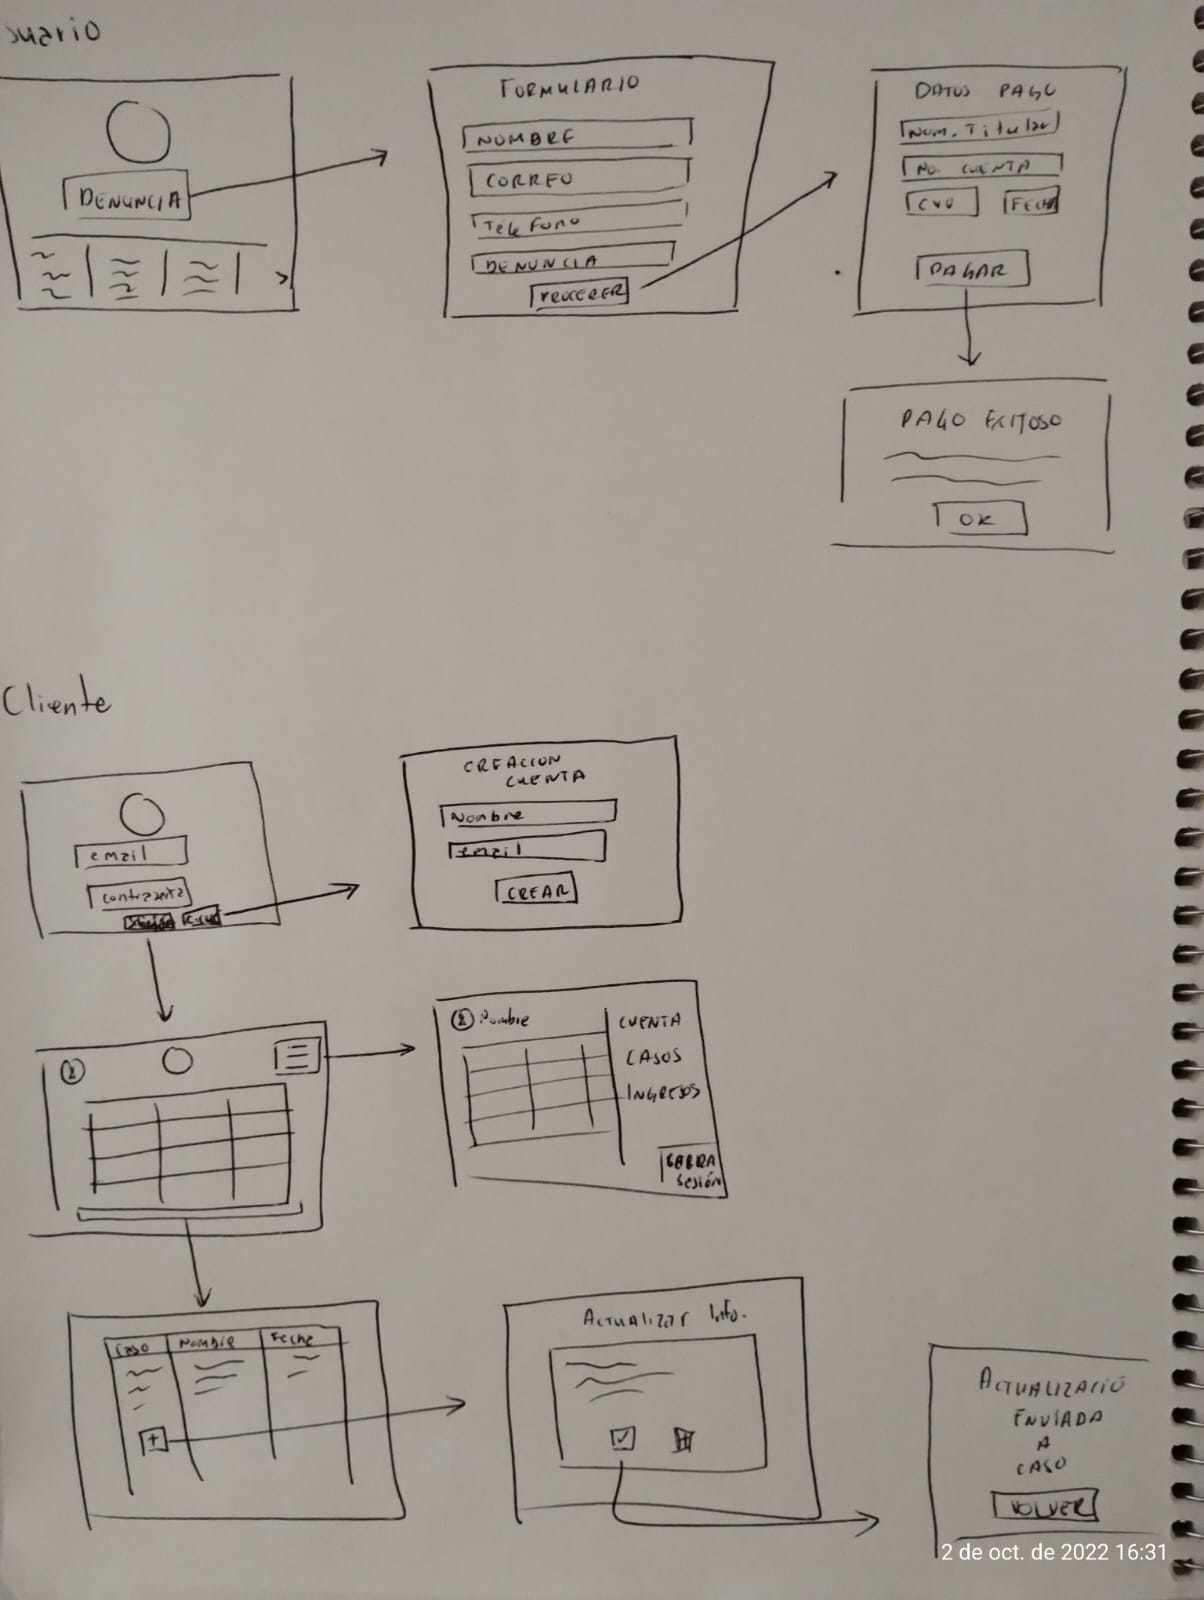 suario
DENUNCIA
FORMULARIO
NOMBRE
CORREO
Teléfono
DENUNCIA
PROCEDER
DATOS PAGO
Nom. Titular
No. CUENTA
CVV
FECHA
PAGAR
PAGO EXITOSO
OK
Cliente
email
contraseña
CREACION
CUENTA
Nombre
email
CREAR
Nombre
CUENTA
CASOS
INGRESOS
CERRA
sesión
Caso
Nombre
Fecha
+
ACTUALIZAR Info.
ACTUALIZACIÓ
ENVIADA
A
CASO
VOLVER
2 de oct. de 2022 16:31